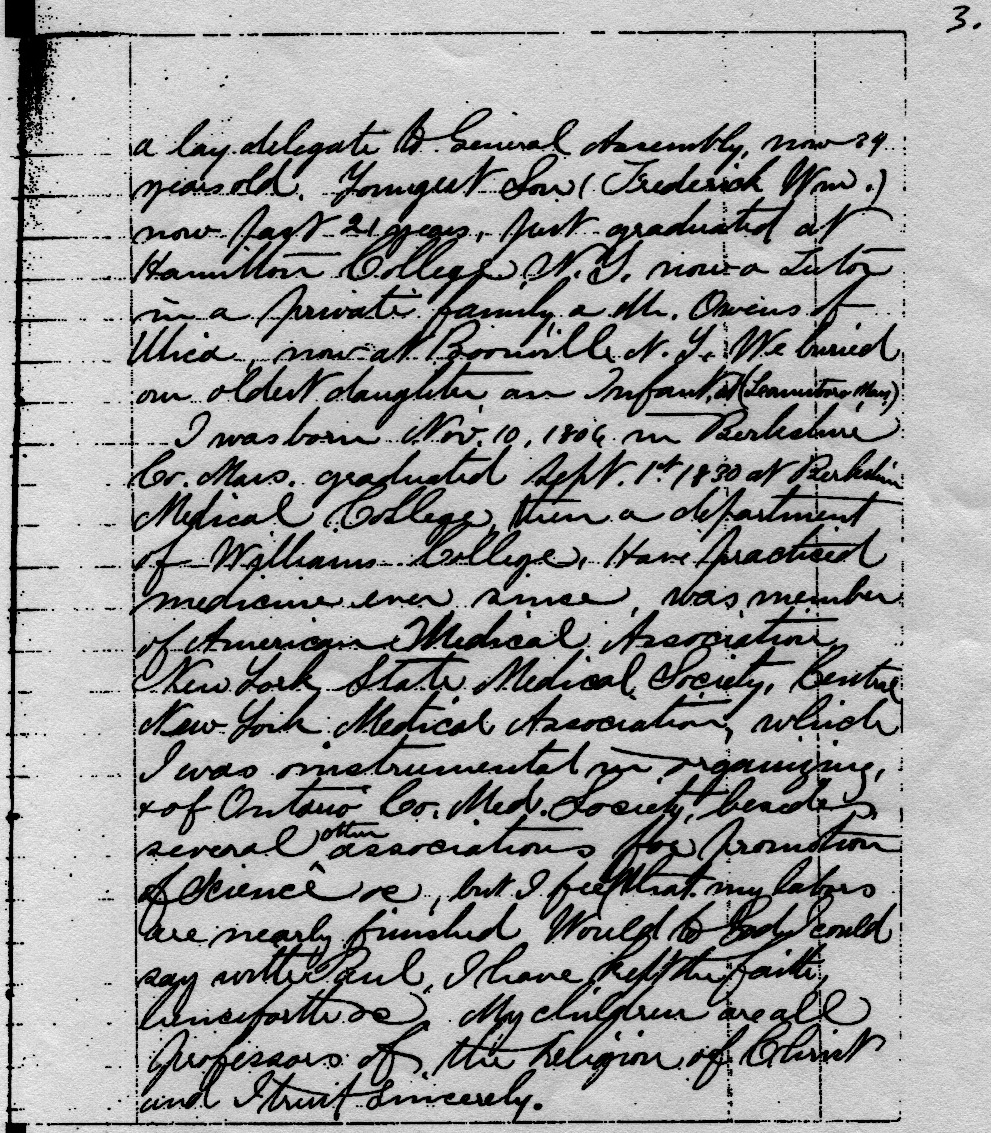 3.
a lay delegate to General Assembly, now 24
years old. Youngest Son (Frederick Wm.)
now past 21 years, just graduated at
Hamilton College, N.Y. now a Tutor
in a private family, a Mr. Owens of
Utica, now at Boonville N.Y. We buried
our oldest daughter an Infant, at (Leominster Mass)
I was born Nov. 10, 1806 in Berkshire
Co. Mass. graduated Sept. 1st 1830 at Berkshire
Medical College, then a department
of Williams College. Have practiced
medicine ever since, was member
of American Medical Association,
New York State Medical Society, Central
New York Medical Association, which
I was instrumental in organizing,
& of Ontario Co. Med. Society, besides
several other associations for promotion
of Science &c, but I feel that my labors
are nearly finished Would to God I could
say with Paul, I have kept the faith,
henceforth &c. My children are all
professors of the religion of Christ
and I trust sincerely.